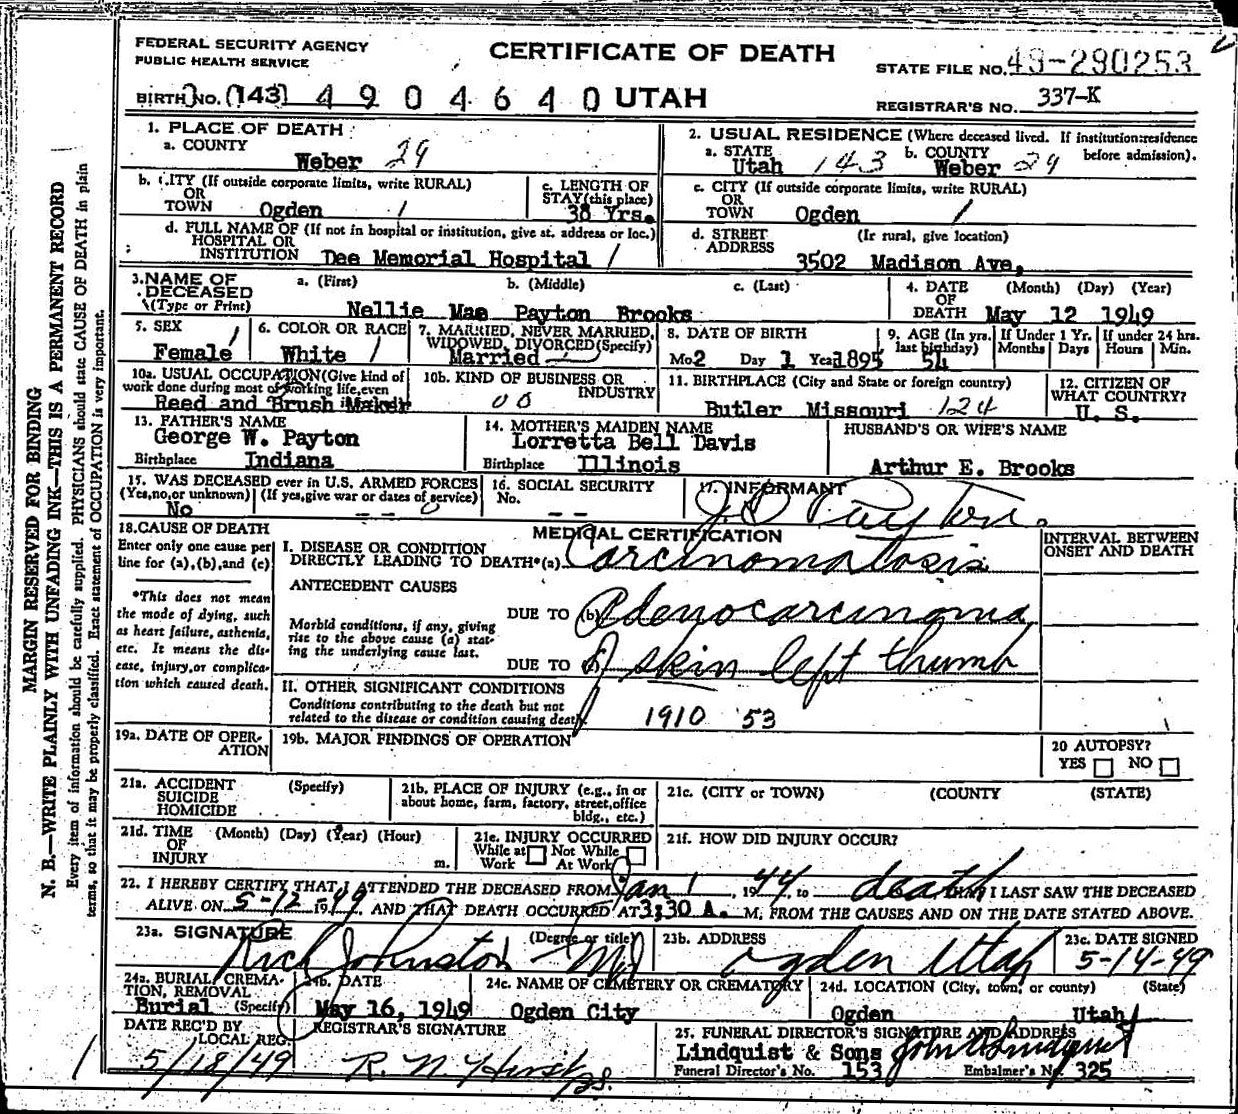 FEDERAL SECURITY AGENCY
PUBLIC HEALTH SERVICE
CERTIFICATE OF DEATH
STATE FILE NO. 49-290253
BIRTH NO. (143) 4904640 UTAH
REGISTRAR'S NO. 337-K
MARGIN RESERVED FOR BINDING
N. B.—WRITE PLAINLY WITH UNFADING INK—THIS IS A PERMANENT RECORD
Every item of information should be carefully supplied. PHYSICIANS should state CAUSE OF DEATH in plain
terms, so that it may be properly classified. Exact statement of OCCUPATION is very important.
1. PLACE OF DEATH
a. COUNTY
Weber 29
2. USUAL RESIDENCE (Where deceased lived. If institution:residence
before admission).
a. STATE
Utah 143
b. COUNTY
Weber 29
b. CITY (If outside corporate limits, write RURAL)
OR
TOWN Ogden 1
c. LENGTH OF
STAY(this place)
38 Yrs.
c. CITY (If outside corporate limits, write RURAL)
OR
TOWN Ogden 1
d. FULL NAME OF (If not in hospital or institution, give st. address or loc.)
HOSPITAL OR
INSTITUTION Dee Memorial Hospital 1
d. STREET (If rural, give location)
ADDRESS
3502 Madison Ave.
3. NAME OF
DECEASED
(Type or Print)
a. (First) b. (Middle) c. (Last)
Nellie Mae Payton Brooks
4. DATE (Month) (Day) (Year)
OF
DEATH May 12 1949
5. SEX
Female 1
6. COLOR OR RACE
White 1
7. MARRIED, NEVER MARRIED,
WIDOWED, DIVORCED(Specify)
Married
8. DATE OF BIRTH
Mo 2 Day 1 Year 1895
9. AGE (In yrs. last birthday)
54
If Under 1 Yr.
Months Days
If under 24 hrs.
Hours Min.
10a. USUAL OCCUPATION(Give kind of
work done during most of working life,even
Reed and Brush Maker
10b. KIND OF BUSINESS OR
INDUSTRY
00
11. BIRTHPLACE (City and State or foreign country)
Butler Missouri 124
12. CITIZEN OF
WHAT COUNTRY?
U. S.
13. FATHER'S NAME
George W. Payton
Birthplace Indiana
14. MOTHER'S MAIDEN NAME
Lorretta Bell Davis
Birthplace Illinois
HUSBAND'S OR WIFE'S NAME
Arthur E. Brooks
15. WAS DECEASED ever in U.S. ARMED FORCES
(Yes,no,or unknown) (If yes,give war or dates of service)
No - - 0
16. SOCIAL SECURITY
No.
- -
17. INFORMANT
Payton.
18. CAUSE OF DEATH
Enter only one cause per
line for (a),(b),and (c)
*This does not mean
the mode of dying, such
as heart failure, asthenia,
etc. It means the dis-
ease, injury,or complica-
tion which caused death.
MEDICAL CERTIFICATION
INTERVAL BETWEEN
ONSET AND DEATH
I. DISEASE OR CONDITION
DIRECTLY LEADING TO DEATH*(a) Carcinomatosis
ANTECEDENT CAUSES
DUE TO (b) Adenocarcinoma
Morbid conditions, if any, giving
rise to the above cause (a) stat-
ing the underlying cause last.
DUE TO of skin left thumb
II. OTHER SIGNIFICANT CONDITIONS
Conditions contributing to the death but not
related to the disease or condition causing death.
1910 53
19a. DATE OF OPER-
ATION
19b. MAJOR FINDINGS OF OPERATION
20 AUTOPSY?
YES NO
21a. ACCIDENT (Specify)
SUICIDE
HOMICIDE
21b. PLACE OF INJURY (e.g., in or
about home, farm, factory, street,office
bldg., etc.)
21c. (CITY or TOWN) (COUNTY) (STATE)
21d. TIME (Month) (Day) (Year) (Hour)
OF
INJURY m.
21e. INJURY OCCURRED
While at Work Not While At Work
21f. HOW DID INJURY OCCUR?
22. I HEREBY CERTIFY THAT I ATTENDED THE DECEASED FROM Jan 1, 1944, to death THAT I LAST SAW THE DECEASED
ALIVE ON 5-12 1949, AND THAT DEATH OCCURRED AT 3:30 A. M, FROM THE CAUSES AND ON THE DATE STATED ABOVE.
23a. SIGNATURE (Degree or title)
Rich Johnston MD
23b. ADDRESS
Ogden Utah
23c. DATE SIGNED
5-14-49
24a. BURIAL, CREMA-
TION, REMOVAL
Burial (Specify)
24b. DATE
May 16, 1949
24c. NAME OF CEMETERY OR CREMATORY
Ogden City
24d. LOCATION (City, town, or county) (State)
Ogden Utah
DATE REC'D BY
LOCAL REG.
5/18/49
REGISTRAR'S SIGNATURE
R. N. Hirst
25. FUNERAL DIRECTOR'S SIGNATURE AND ADDRESS
Lindquist & Sons John A Lindquist
Funeral Director's No. 153 Embalmer's No. 325